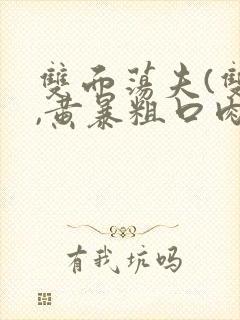 雙面蕩夫(雙
,黃暴粗口肉
有我坑吗